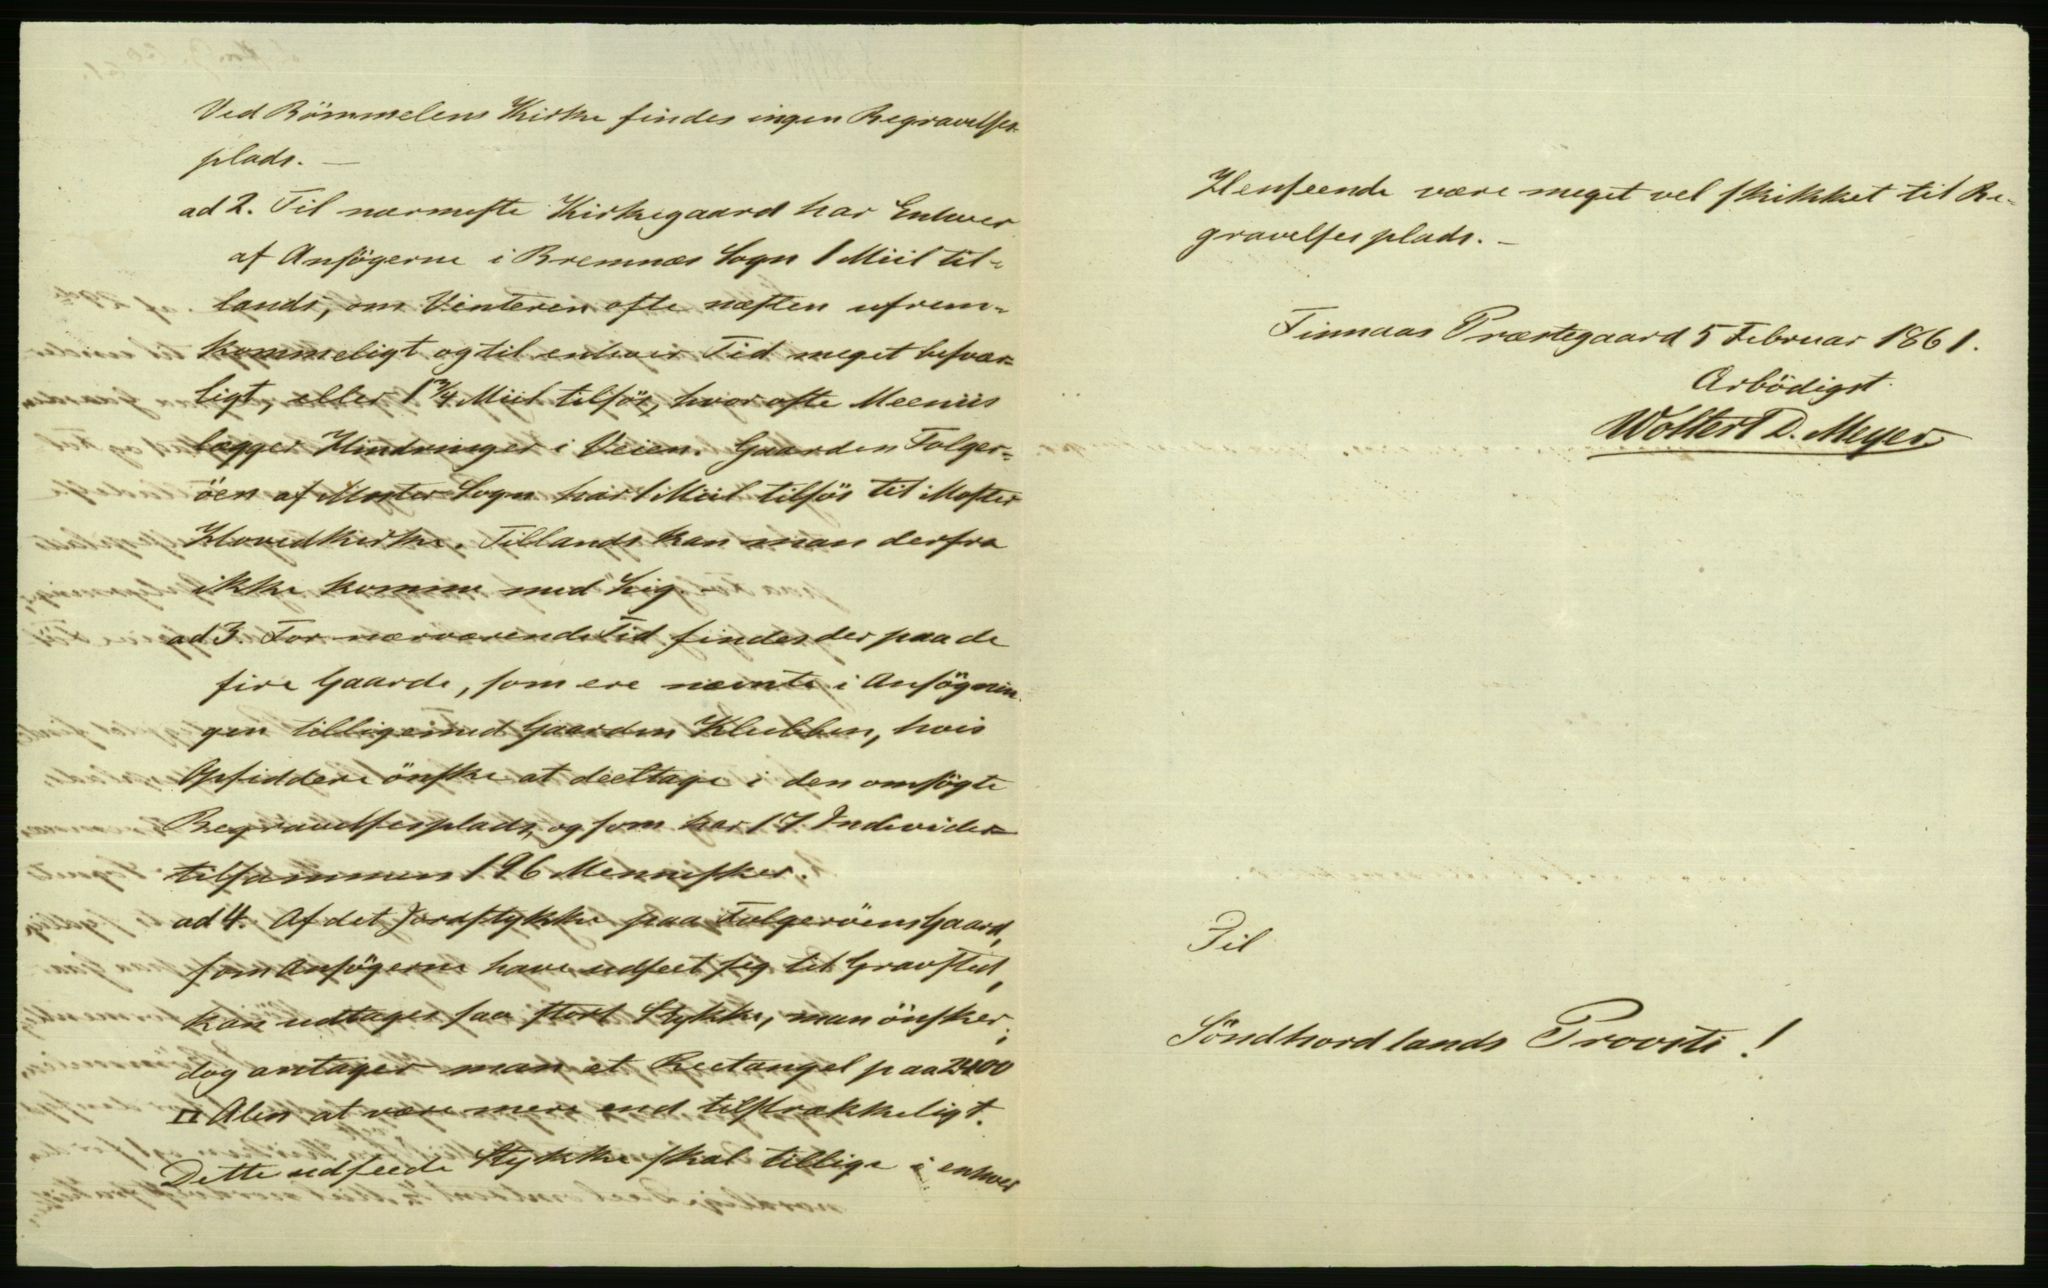 Ved Bömmelens Kirke findes ingen Begravelses-
plads. —
ad 2. Til nærmeste Kirkegaard har Enhver
af Ansögerne i Bremnæs Sogn 1 Miil til-
lands, om Vinteren ofte næsten ufrem-
kommeligt og til enhver Tid meget besvær-
ligt, eller 1 3/4 Miil tilsös, hvor ofte Meeniis
lægger Hindringer i Veien. Gaarden Folger-
öen af Moster Sogn har 1 Miil tilsös til Moster
Hovedkirke. Tillands kan man derfra
ikke komme med Lig.
ad 3. For nærværende Tid findes der paa de
fire Gaarde, som ere nævnte i Ansögnin-
gen tilligemed Gaarden Klubben, hvis
Opsiddere önske at deeltage i den omsögte
Begravelsesplads, og som har 17 Individer
tilsammen 196 Mennesker.
ad 4. Af det Jordstykke paa Folgeröens Gaard,
som Ansögerne have udseet sig til Gravsted,
kan udtages saa stort Stykke, man önsker;
dog antager man et Rectangel paa 2400
□ Alen at være mere end tilstrækkeligt.
Dette udseede Stykke skal tillige i enhver
Henseende være meget vel skikket til Be-
gravelsesplads. —
Finnaas Præstegaard 5 Februar 1861.
Ærbödigst
Woltert D. Meyer
Til
Söndhordlands Provsti!